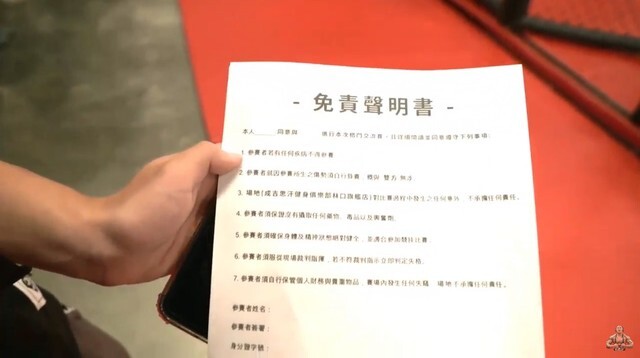 - 免責聲明書 -
本人______同意與 進行本次格鬥交流賽，且在個環境並同意遵守下列事項：
1. 參賽者若有任何疾病不得參賽
2. 參賽者就因參賽所生之傷勢須自行負責 雙方無涉。
3. 場地[成吉思汗健身俱樂部林口旗艦店]對比賽過程中發生之任何意外，不承擔任何責任。
4. 參賽者須保證沒有攝取任何藥物、毒品以及興奮劑。
5. 參賽者須確保身體及精神狀態絕對健全，並適合參加競技比賽
6. 參賽者須服從現場裁判指揮，若不符裁判指示立即判定失格。
7. 參賽者須自行保管個人財務與貴重物品，賽場內發生任何失竊，場地不承擔任何責任。
參賽者姓名：
參賽者簽署：
身分證字號：